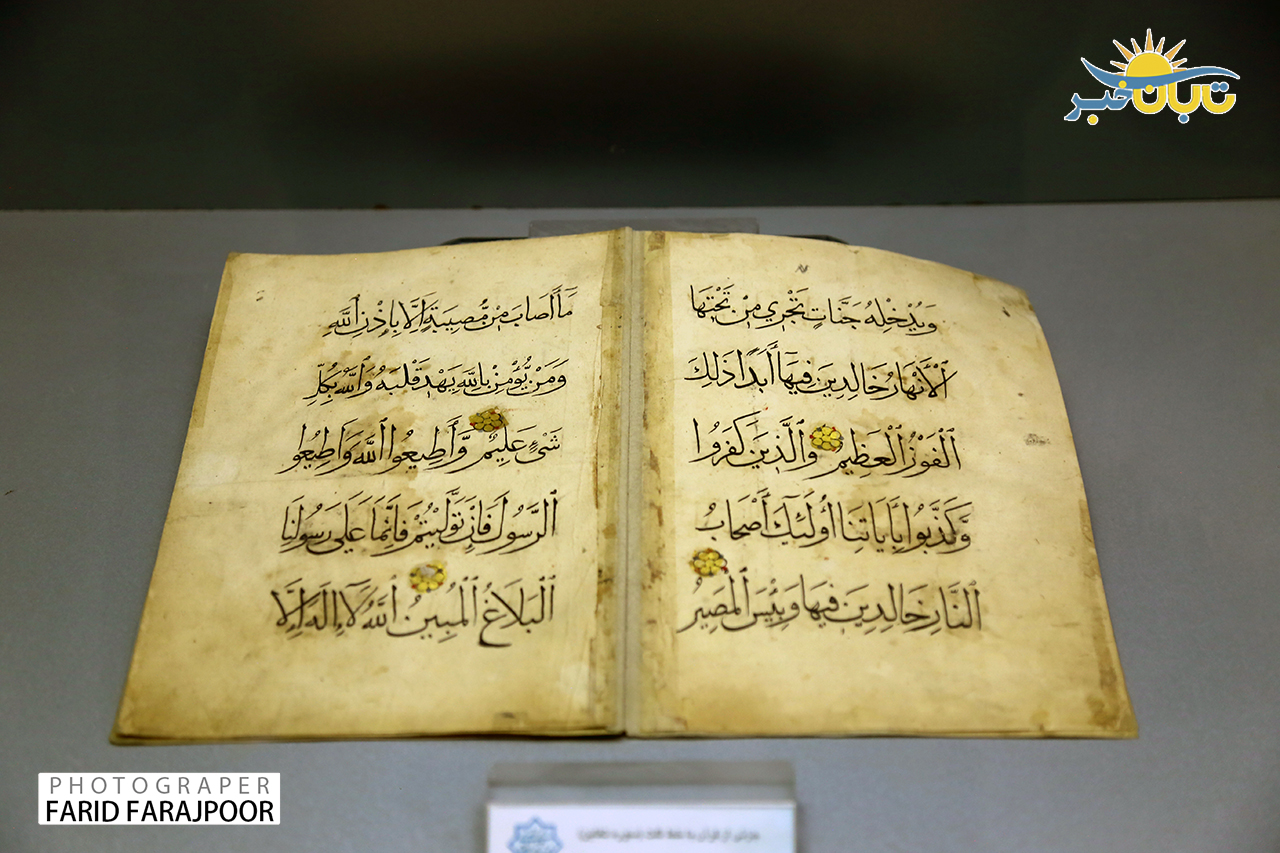 تابان خبر
وَيُدْخِلْهُ جَنَّاتٍ تَجْرِي مِنْ تَحْتِهَا
ٱلْأَنْهَارُ خَالِدِينَ فِيهَآ أَبَدًا ذَلِكَ
ٱلْفَوْزُ ٱلْعَظِيمُ وَٱلَّذِينَ كَفَرُوا
وَكَذَّبُوا بِآيَاتِنَا أُولَٰئِكَ أَصْحَابُ
ٱلنَّارِ خَالِدِينَ فِيهَا وَبِئْسَ ٱلْمَصِيرُ
مَآ أَصَابَ مِنْ مُّصِيبَةٍ إِلَّا بِإِذْنِ ٱللَّهِ
وَمَنْ يُّؤْمِنْ بِاللَّهِ يَهْدِ قَلْبَهُ وَٱللَّهُ بِكُلِّ
شَىْءٍ عَلِيمٌ وَّأَطِيعُوا ٱللَّهَ وَأَطِيعُوا
ٱلرَّسُولَ فَإِنْ تَوَلَّيْتُمْ فَإِنَّمَا عَلَى رَسُولِنَا
ٱلْبَلَاغُ ٱلْمُبِينُ ٱللَّهُ لَآ إِلَهَ إِلَّا
PHOTOGRAPER
FARID FARAJPOOR